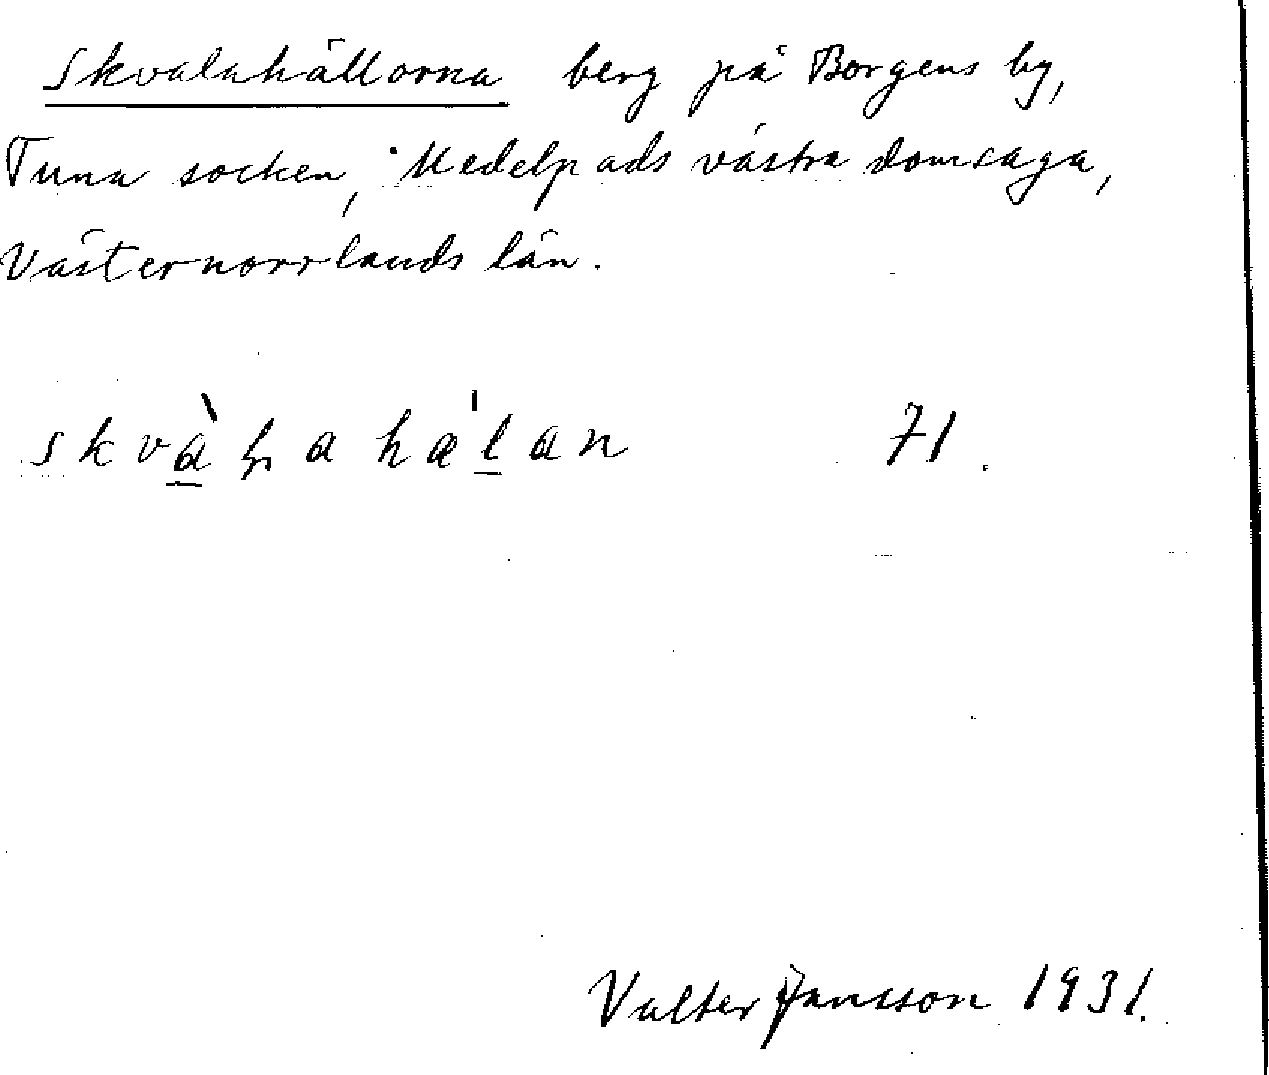 Skvalahällorna berg på Borgens by,
Tuna socken, Medelpads västra domsaga,
Västernorrlands län.
71.
Valter Jansson 1931.